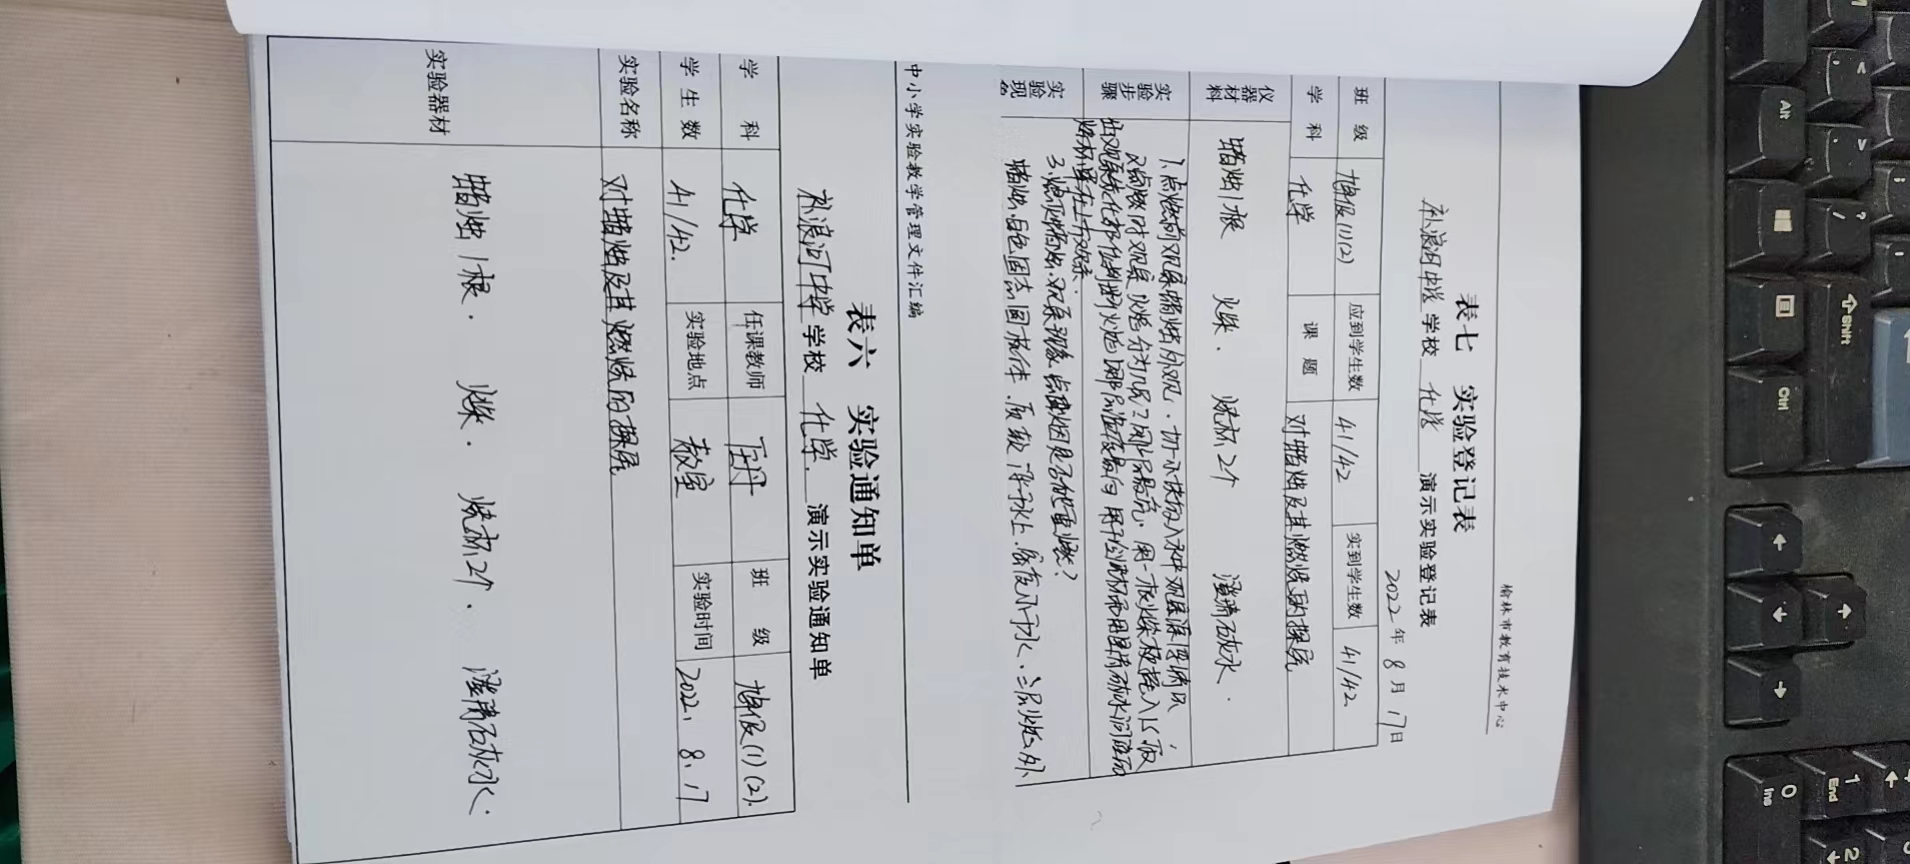 榆林市教育技术中心
表七 实验登记表
补浪河中学 学校 化学 演示实验登记表
2022年8月17日
班级 九年级(1)(2) 应到学生数 41/42 实到学生数 41/42
学科 化学 课题 对蜡烛及其燃烧的探究
仪器材料 蜡烛1根 火柴. 烧杯2个 澄清石灰水.
实验步骤 1. 点燃前观察蜡烛的外观. 切一小块放入水中观察深浮情况,
2. 点燃时观察火焰分为几层?哪层最亮. 用一根火柴梗插入1s取
出观察炭化部位判断火焰哪层温度最高
烧杯罩在上方观察.
3. 熄灭蜡烛. 观察现象. 点燃火烟是否能重燃?
实验现
蜡烛, 白色固态圆柱体. 质软 浮于水上. 密度小于水. 三层火焰, 外
中小学实验教学管理文件汇编
表六 实验通知单
补浪河中学 学校 化学. 演示实验通知单
学科 化学 任课教师 班级 九年级(1)(2).
学生数 41/42. 实验地点 教室 实验时间 2022. 8. 17
实验名称 对蜡烛及其燃烧的探究
实验器材 蜡烛1根. 火柴. 烧杯2个. 澄清石灰水.
Alt
Ctrl
Shift
End
1
0
Ins
2